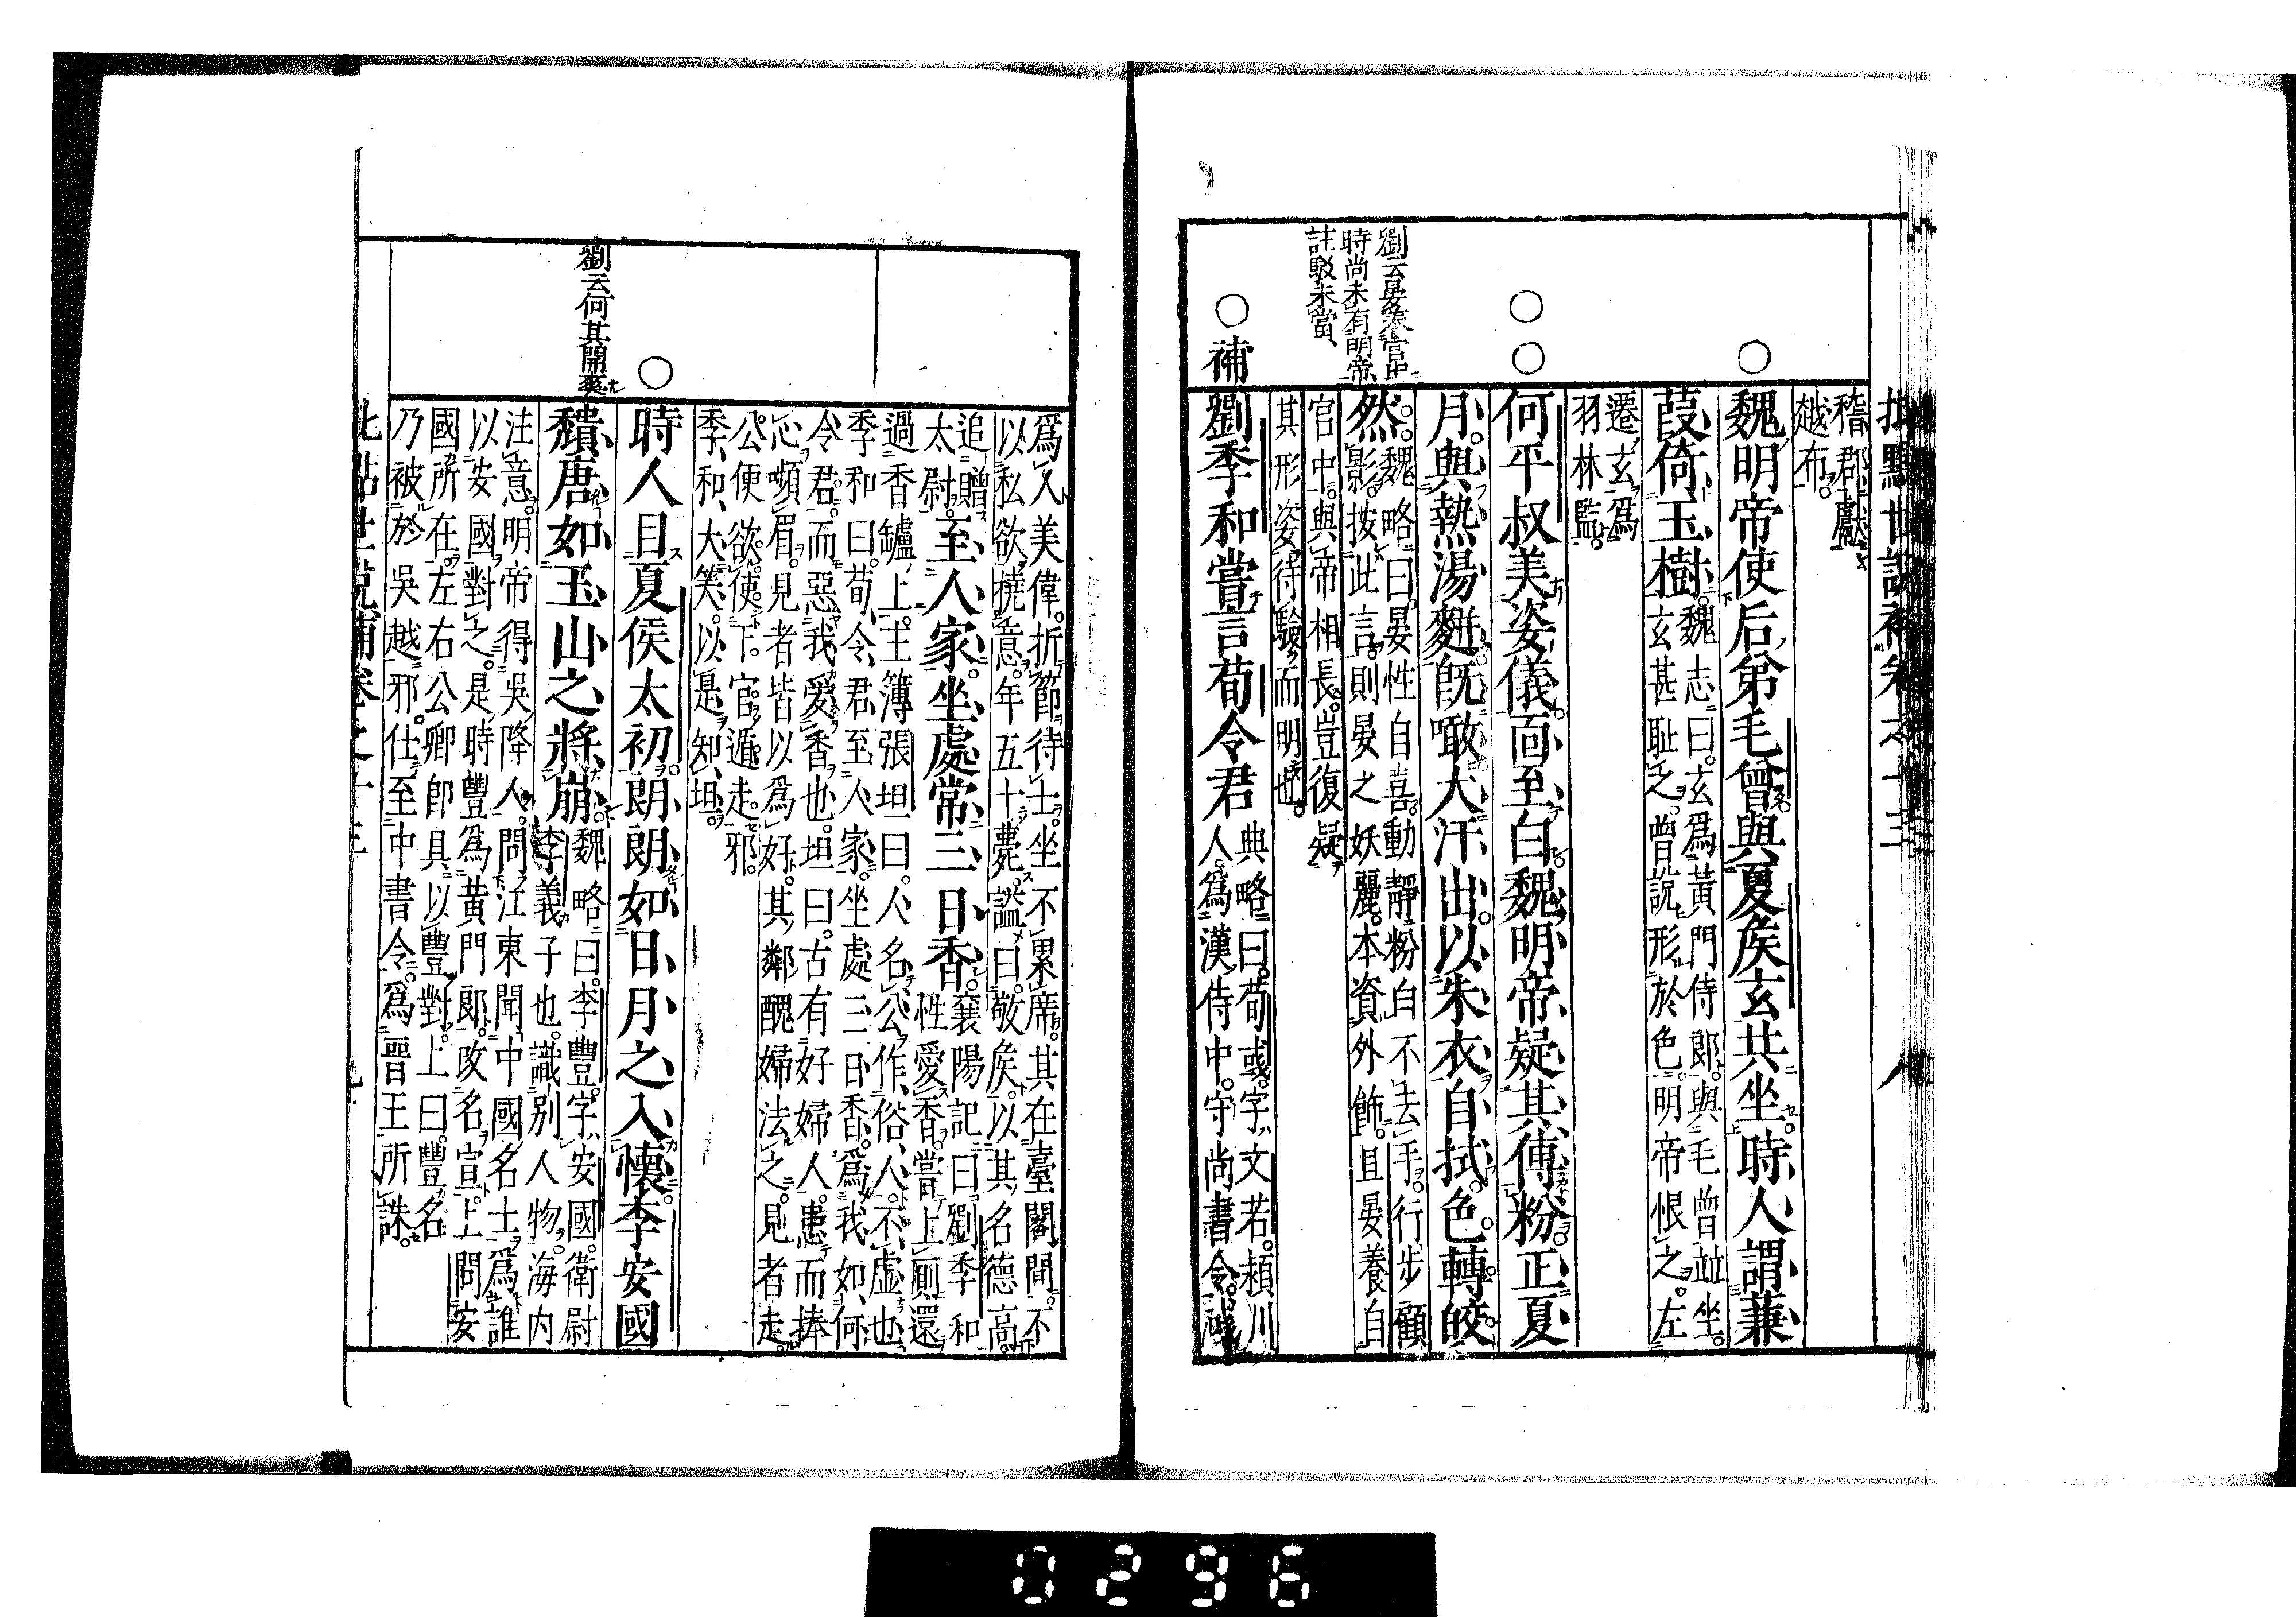 批點世說補卷之十三 八
稽郡獻
越布。
魏明帝使后弟毛曾與夏侯玄共坐。時人謂蒹
葭倚玉樹。
魏志曰。玄爲黃門侍郎。與毛曾竝坐。
玄甚恥之。曾說形於色。明帝恨之。左
遷玄爲
羽林監。
何平叔美姿儀。面至白。魏明帝疑其傅粉。正夏
月。與熱湯麪。既噉大汗出。以朱衣自拭。色轉皎
然。
魏略曰。晏性自喜。動靜粉白不去手。行步顧
影。按此言。則晏之妖麗。本資外飾。且晏養自
官中。與帝相長。豈復疑
其形姿。待驗而明也。
劉云晏養官中
時尚未有明帝
註駁未當、
補
劉季和嘗言荀令君
典略曰。荀彧。字文若。潁川
人。爲漢侍中。守尚書令。彧
爲人美偉。折節待士。坐不累席。其在臺閣間。不
以私欲撓意。年五十薨。諡曰。敬侯。以其名德高。
追贈
太尉。
至人家。坐處常三日香。
襄陽記曰劉季和
性愛香。嘗上廁還
過香鑪上。主簿張坦曰。人名公作俗人。不虛也。
季和曰。荀令君至人家。坐處三日香。爲我如何
令君。而惡我愛香也。坦曰。古有好婦人。患而捧
心嚬眉。見者皆以爲好。其鄰醜婦法之。見者走。
公便欲使下官遁走邪。
季和大笑。以是知坦。
時人目夏侯太初。朗朗如日月之入懷。李安國
穨唐如玉山之將崩。
魏略曰。李豐。字安國。衛尉
李義子也。識別人物。海内
注意。明帝得吳降人。問江東聞中國名士爲誰
以安國對之。是時豐爲黃門郎。改名宣。上問安
國所在。左右公卿即具以豐對。上曰。豐名
乃被於吳越邪。仕至中書令。爲晉王所誅。
劉云何其開爽
批點世說補卷之十三 九
0296